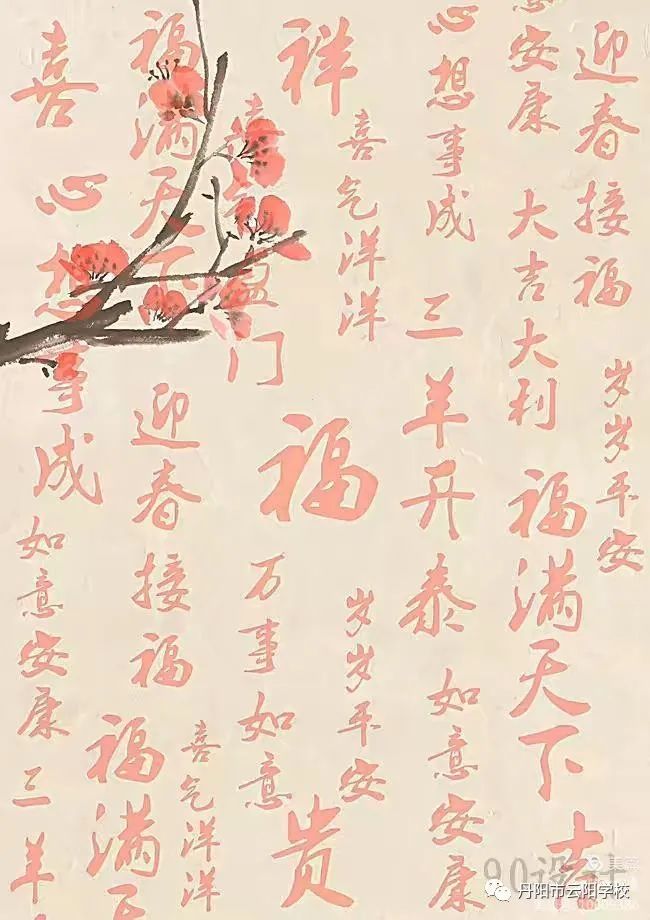 迎春接福
岁岁平安
意安康
大吉大利
福满天下
吉
心想事成
三羊开泰
如意安康
喜气洋洋
岁岁平安
祥
福
贵
喜
盈门
万事如意
福满天下
迎春接福
喜气洋洋
福满天
喜
心想事成
如意安康
三羊
90设计
美篇
丹阳市云阳学校